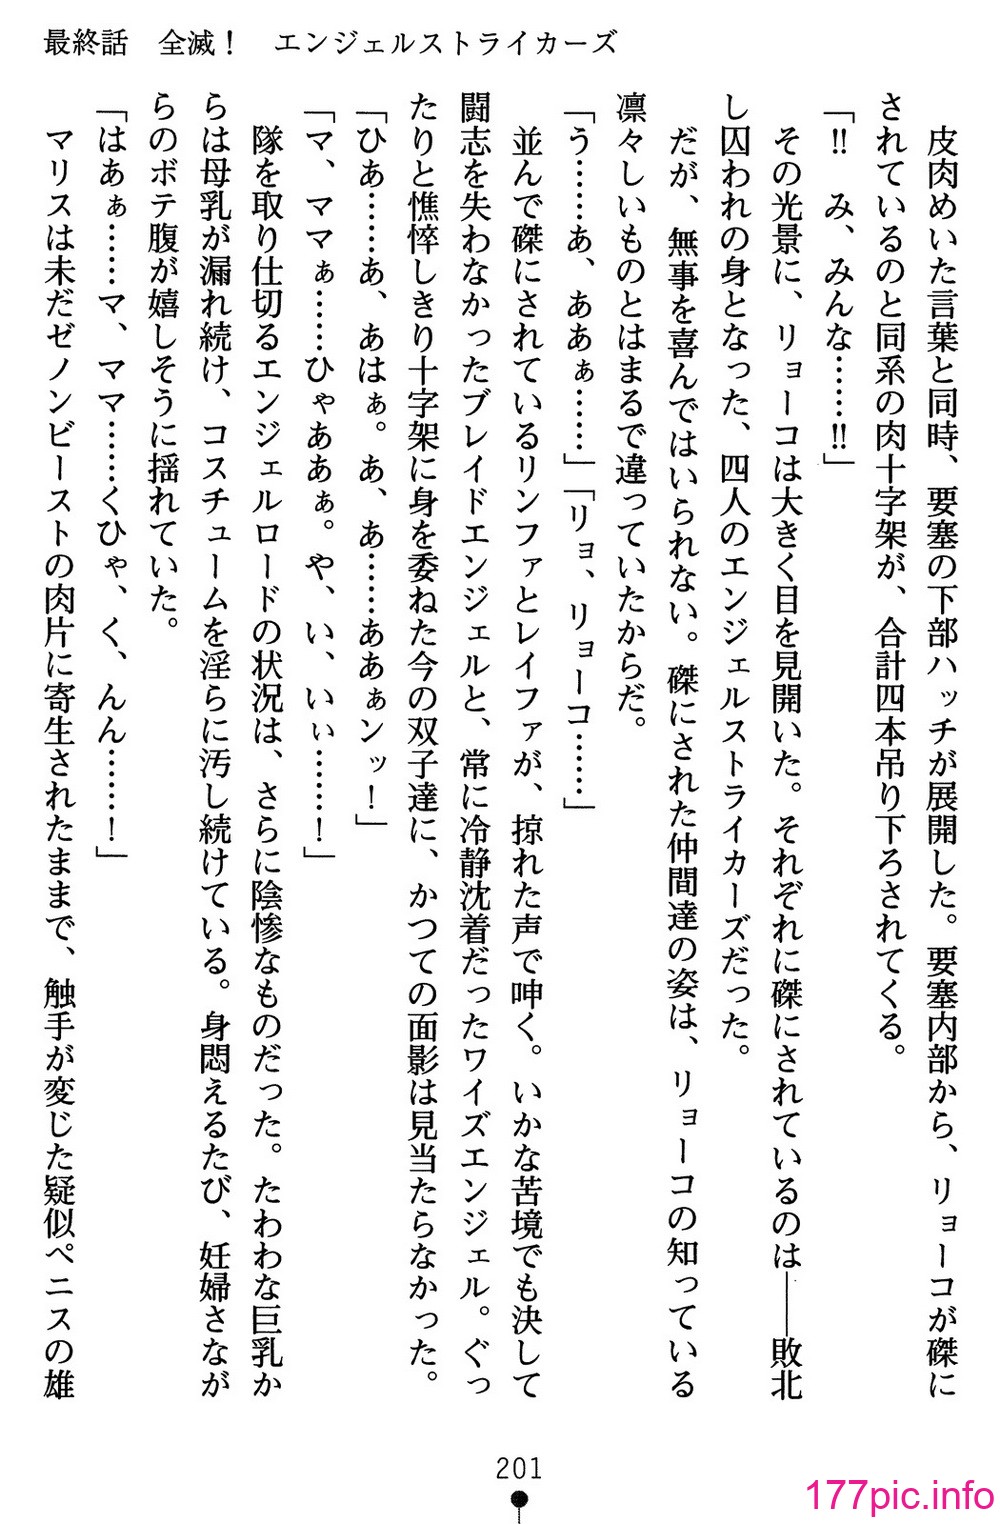 最終話　全滅！　エンジェルストライカーズ
皮肉めいた言葉と同時、要塞の下部ハッチが展開した。要塞内部から、リョーコが磔に
されているのと同系の肉十字架が、合計四本吊り下ろされてくる。
「!!　み、みんな……!!」
その光景に、リョーコは大きく目を見開いた。それぞれに磔にされているのは――敗北
し囚われの身となった、四人のエンジェルストライカーズだった。
だが、無事を喜んではいられない。磔にされた仲間達の姿は、リョーコの知っている
凛々しいものとはまるで違っていたからだ。
「う……あ、ああぁ……」「リョ、リョーコ……」
並んで磔にされているリンファとレイファが、掠れた声で呻く。いかな苦境でも決して
闘志を失わなかったブレイドエンジェルと、常に冷静沈着だったワイズエンジェル。ぐっ
たりと憔悴しきり十字架に身を委ねた今の双子達に、かつての面影は見当たらなかった。
「ひあ……あ、あはぁ。あ、あ……ああぁンッ！」
「マ、ママぁ……ひゃああぁ。や、い、いぃ……！」
隊を取り仕切るエンジェルロードの状況は、さらに陰惨なものだった。たわわな巨乳か
らは母乳が漏れ続け、コスチュームを淫らに汚し続けている。身悶えるたび、妊婦さなが
らのボテ腹が嬉しそうに揺れていた。
「はあぁ……マ、ママ……くひゃ、く、んん……！」
マリスは未だゼノンビーストの肉片に寄生されたままで、触手が変じた疑似ペニスの雄
201
177pic.info